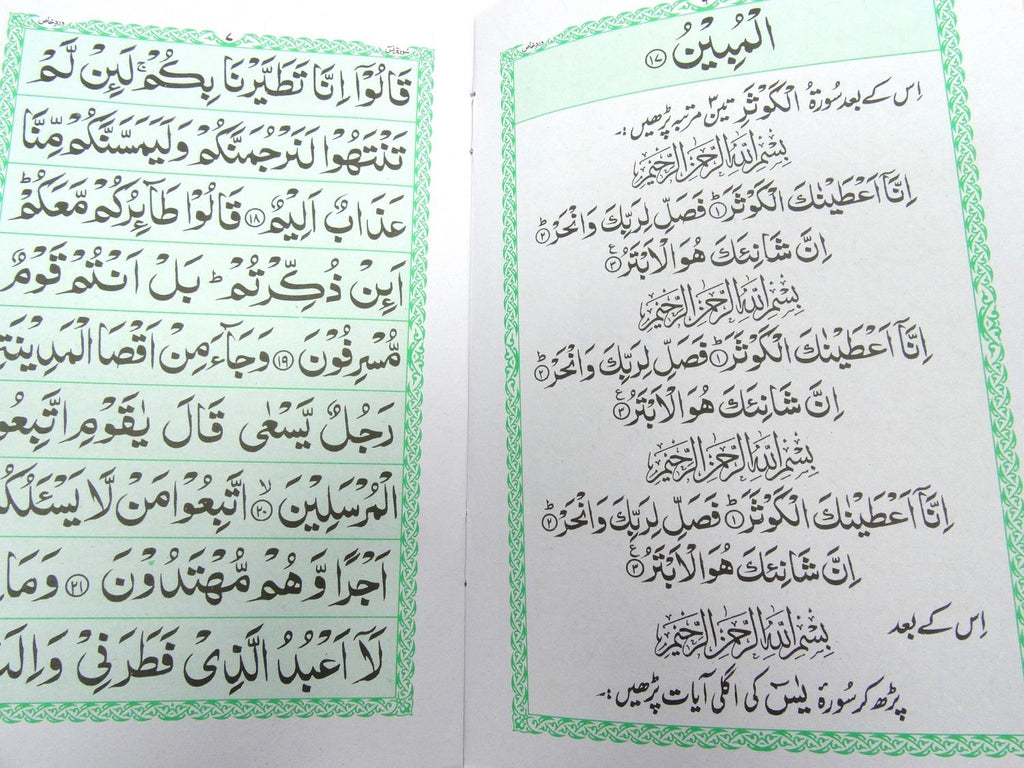 ورد خاص
٦
الْمُبِيْنُ ﴿١٧﴾
اِس کے بعد سُورۃُ الْکَوْثَرَ تین۳ مرتبہ پڑھیں :۔
بِسْمِ اللهِ الرَّحْمٰنِ الرَّحِيْمِ
اِنَّآ اَعْطَيْنٰكَ الْكَوْثَرَ ؕ﴿١﴾ فَصَلِّ لِرَبِّكَ وَانْحَرْ ؕ﴿٢﴾
اِنَّ شَانِئَكَ هُوَ الْاَبْتَرُ ﴿٣﴾ ع
بِسْمِ اللهِ الرَّحْمٰنِ الرَّحِيْمِ
اِنَّآ اَعْطَيْنٰكَ الْكَوْثَرَ ؕ﴿١﴾ فَصَلِّ لِرَبِّكَ وَانْحَرْ ؕ﴿٢﴾
اِنَّ شَانِئَكَ هُوَ الْاَبْتَرُ ﴿٣﴾ ع
بِسْمِ اللهِ الرَّحْمٰنِ الرَّحِيْمِ
اِنَّآ اَعْطَيْنٰكَ الْكَوْثَرَ ؕ﴿١﴾ فَصَلِّ لِرَبِّكَ وَانْحَرْ ؕ﴿٢﴾
اِنَّ شَانِئَكَ هُوَ الْاَبْتَرُ ﴿٣﴾ ع
اِس کے بعد بِسْمِ اللهِ الرَّحْمٰنِ الرَّحِيْمِ
پڑھ کر سُورۂ یٰسٓ کی اگلی آیات پڑھیں :۔
سورۃ یٰسٓ ٧ ورد خاص
قَالُوْٓا اِنَّا تَطَيَّرْنَا بِكُمْ ۚ لَئِنْ لَّمْ
تَنْتَهُوْا لَنَرْجُمَنَّكُمْ وَلَيَمَسَّنَّكُمْ مِّنَّا
عَذَابٌ اَلِيْمٌ ﴿١٨﴾ قَالُوْا طَآئِرُكُمْ مَّعَكُمْ ؕ
اَئِنْ ذُكِّرْتُمْ ؕ بَلْ اَنْتُمْ قَوْمٌ
مُّسْرِفُوْنَ ﴿١٩﴾ وَجَآءَ مِنْ اَقْصَا الْمَدِيْنَةِ
رَجُلٌ يَّسْعٰى قَالَ يٰقَوْمِ اتَّبِعُو
الْمُرْسَلِيْنَ ۙ﴿٢٠﴾ اتَّبِعُوْا مَنْ لَّا يَسْئَلُكُ
اَجْرًا وَّهُمْ مُّهْتَدُوْنَ ﴿٢١﴾ وَمَا
لَآ اَعْبُدُ الَّذِىْ فَطَرَنِىْ وَاِلَ